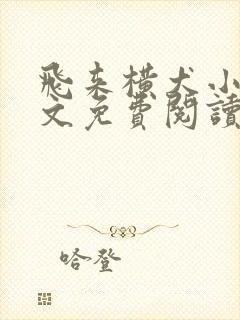 飛来横犬小
文免費閱讀
哈登